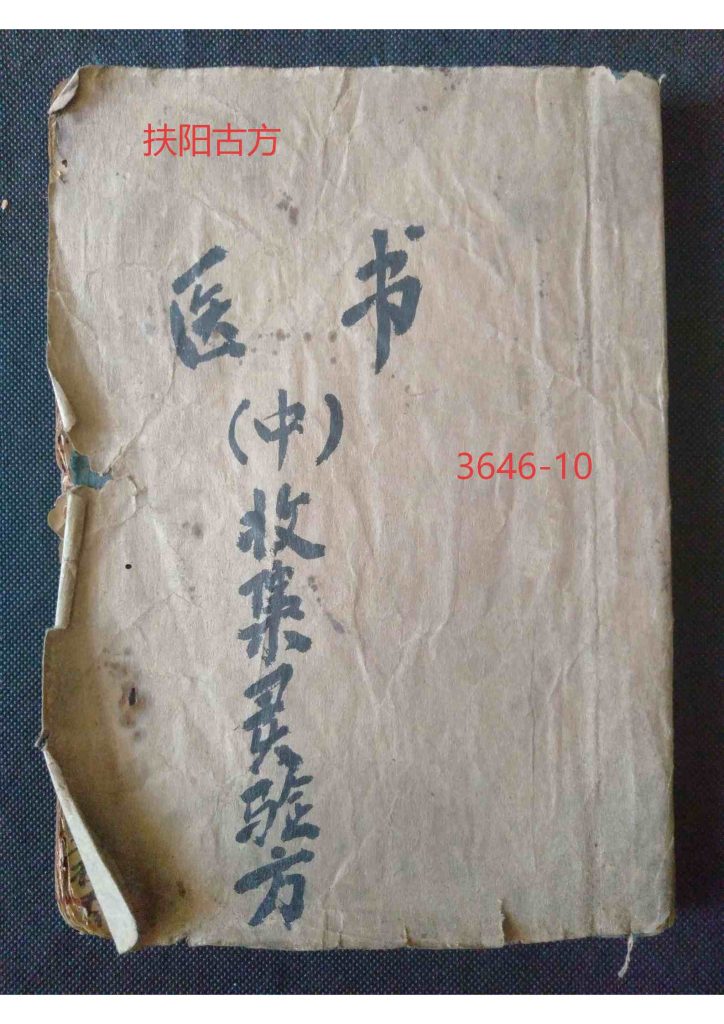 扶阳古方
医书
(中)
3646-10
收集灵验方